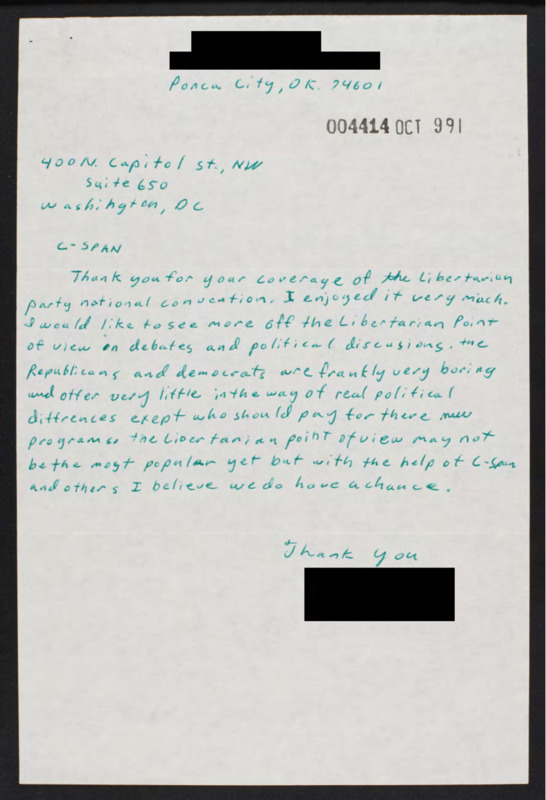 Ponca City, OK. 74601
004414 OCT 991
400 N. Capitol St., NW
Suite 650
Washington, DC
C-SPAN
Thank you for your coverage of the Libertarian
party national convention. I enjoyed it very much.
I would like to see more off the Libertarian Point
of view in debates and political discusions. the
Republicans and democrats are frankly very boring
and offer very little in the way of real political
diffrences exept who should pay for there new
programs. the Libertarian point of view may not
be the most popular yet but with the help of C-Span
and others I believe we do have a chance.
Thank You